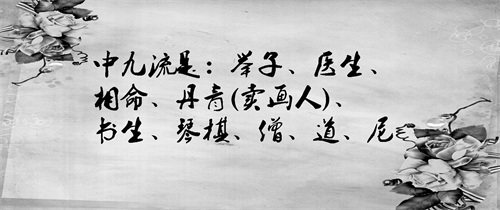 中九流是：举子、医生、
相命、丹青(卖画人)、
书生、琴棋、僧、道、尼